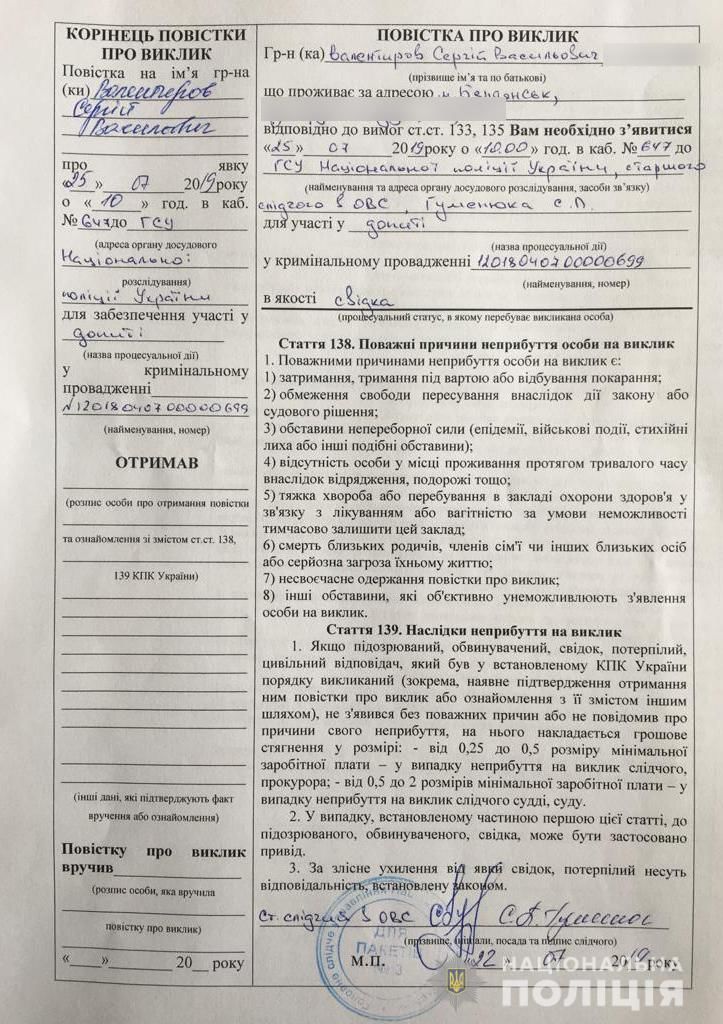 КОРІНЕЦЬ ПОВІСТКИ
ПРО ВИКЛИК
Повістка на ім’я гр-на
(ки) Валентиров
Сергій
Василович
про явку
«25 » 07 2019 року
о « 10 » год. в каб.
№ 647 до ГСУ
(адреса органу досудового
Національної
розслідування)
поліції України
для забезпечення участі у
допиті
(назва процесуальної дії)
у кримінальному
провадженні
№12018040700000699
(найменування, номер)
ОТРИМАВ
(розпис особи про отримання повістки
та ознайомлення зі змістом ст.ст. 138,
139 КПК України)
(інші дані, які підтверджують факт
вручення або ознайомлення)
Повістку про виклик
вручив
(розпис особи, яка вручила
повістку про виклик)
« » 20 року
ПОВІСТКА ПРО ВИКЛИК
Гр-н (ка) Валентиров Сергій Васильович
(прізвище ім’я та по батькові)
що проживає за адресою м.
відповідно до вимог ст.ст. 133, 135 Вам необхідно з’явитися
«25» 07 2019 року о «10.00» год. в каб. № 647 до
ГСУ Національної поліції України, старшого
(найменування та адреса органу досудового розслідування, засоби зв’язку)
слідчого в ОВС, Гуменюка С.П.
для участі у допиті
(назва процесуальної дії)
у кримінальному провадженні 12018040700000699
(найменування, номер)
в якості свідка
(процесуальний статус, в якому перебуває викликана особа)
Стаття 138. Поважні причини неприбуття особи на виклик
1. Поважними причинами неприбуття особи на виклик є:
1) затримання, тримання під вартою або відбування покарання;
2) обмеження свободи пересування внаслідок дії закону або
судового рішення;
3) обставини непереборної сили (епідемії, військові події, стихійні
лиха або інші подібні обставини);
4) відсутність особи у місці проживання протягом тривалого часу
внаслідок відрядження, подорожі тощо;
5) тяжка хвороба або перебування в закладі охорони здоров'я у
зв'язку з лікуванням або вагітністю за умови неможливості
тимчасово залишити цей заклад;
6) смерть близьких родичів, членів сім'ї чи інших близьких осіб
або серйозна загроза їхньому життю;
7) несвоєчасне одержання повістки про виклик;
8) інші обставини, які об'єктивно унеможливлюють з'явлення
особи на виклик.
Стаття 139. Наслідки неприбуття на виклик
1. Якщо підозрюваний, обвинувачений, свідок, потерпілий,
цивільний відповідач, який був у встановленому КПК України
порядку викликаний (зокрема, наявне підтвердження отримання
ним повістки про виклик або ознайомлення з її змістом іншим
шляхом), не з'явився без поважних причин або не повідомив про
причини свого неприбуття, на нього накладається грошове
стягнення у розмірі: - від 0,25 до 0,5 розміру мінімальної
заробітної плати – у випадку неприбуття на виклик слідчого,
прокурора; - від 0,5 до 2 розмірів мінімальної заробітної плати – у
випадку неприбуття на виклик слідчого судді, суду.
2. У випадку, встановленому частиною першою цієї статті, до
підозрюваного, обвинуваченого, свідка, може бути застосовано
привід.
3. За злісне ухилення від явки свідок, потерпілий несуть
відповідальність, встановлену законом.
Ст. слідчий в ОВС С.П. Гуменюк
(прізвище, ініціали, посада та підпис слідчого)
М.П. «22» 07 2019 року
ДЛЯ
ПАКЕТІВ
№ 3
НАЦІОНАЛЬНА
ПОЛІЦІЯ